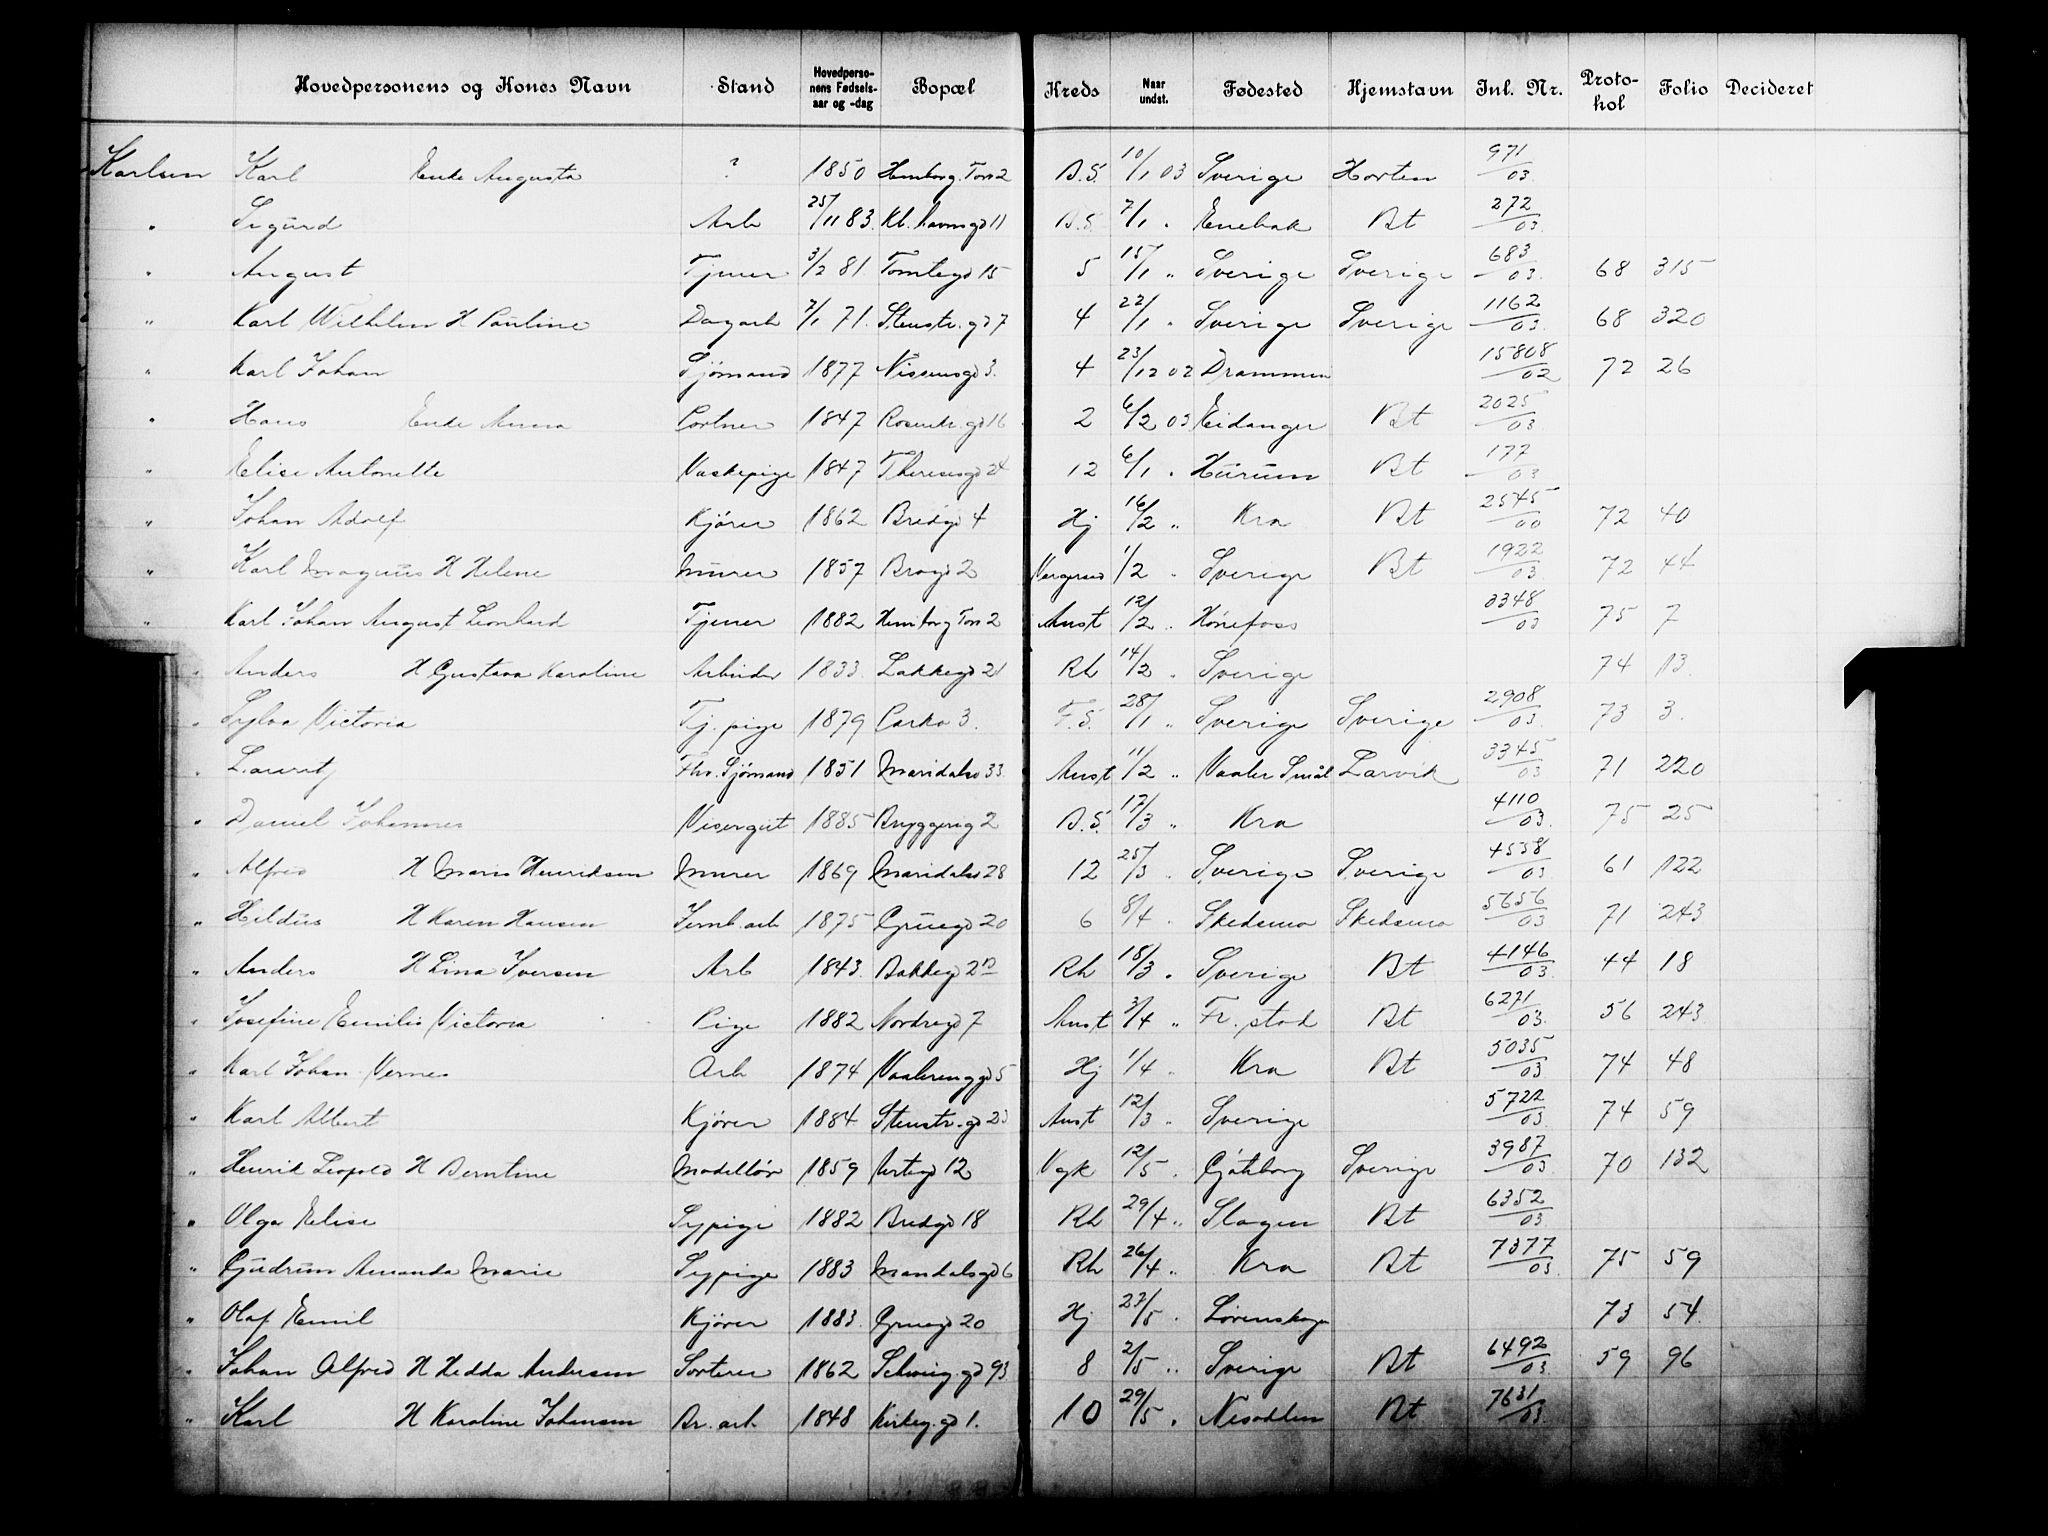 Hovedpersonens og Kones Navn Stand Hovedperso-nens Fødsels-aar og -dag Bopæl Kreds Naar undst. Fødested Hjemstavn Inl. Nr. Proto-kol Folio Decideret
Karlsen Karl Enke Augusta ? 1850 Hemborg. Torv 2 B.S. 10/1 03 Sverige Horten 971/03
" Sigurd Arb 25/11 83. Kb.havnsgd 11 B.S. 7/1 " Enebak Bt 272/03
" August Tjener 3/2 81 Tomtegd 15 5 15/1 " Sverige Sverige 683/03 68 315
" Karl Wilhelm H Pauline Dagarb 7/1 71. Stenstr. gd 7 4 22/1 " Sverige Sverige 1162/03 68 320
" Karl Johan Sjømand 1877 Nissensgd 3. 4 23/12 02 Drammen 15808/02 72 26
" Hans Enke Anna Portner 1847 Rosenkr. gd 16 2 6/2 03 Eidanger Bt 2025/03
" Elise Antonette Vaskepige 1847 Theresesgd 24 12 6/1 " Hurum Bt 177/03
" Johan Adolf Kjører 1862 Bredgd 4 Hj 16/2 " Kra Bt 2545/00 72 40
" Karl Magnus H Helene Murer 1857 Brogd 2 1/2 " Sverige Bt 1922/03 72 44
" Karl Johan August Leonhard Tjener 1882 Hemborg Torv 2 Anst 12/2 " Hønefoss 3348/03 75 7
" Anders H Gustava Karoline Arbeider 1833 Lakkegd 21 Rh 14/2 " Sverige 74 13.
" Sylva Victoria Tj. pige 1879 Parkv 3. F.S. 28/1 " Sverige Sverige 2908/03 73 3.
" Lauritz Fhv. Sjømand 1851 Maridalsv 33. Anst 11/2 " Vaaler Smål Larvik 3345/03 71 220
" Daniel Johannes Visergut 1885 Bryggerig 2 B.S. 17/3 " Kra 4110/03. 75 25
" Alfred H Marie Henriksen Murer 1869 Maridalsv 28 12 25/3 " Sverige Sverige 4538/03. 61 122
" Hildus H Karen Hansen Jernb. arb 1875 Gruegd 20 6 8/4 " Skedsmo Skedsmo 5656/03 71 243
" Anders H Lina Iversen Arb 1843. Bakkegd 2 Rh 18/3 " Sverige Bt 4146/03. 44 18
" Josefine Emilie Victoria Pige 1882 Nordregd 7 Anst 3/4 " Fr. stad Bt 6271/03. 56 243
" Karl Johan Vernes Arb 1874 Vaalerenggd 5 Hj 1/4 " Kra Bt 5035/03 74 48
" Karl Albert Kjører 1884 Stenstr. gd 23 Anst 12/3 " Sverige 5722/03. 74 59
" Henrik Leopold H Berntine Modellør 1859 Urtegd 12 Vgk 12/5 " Gøteborg Sverige 3987/03. 70 132
" Olga Elise Sypige 1882 Bredgd 18 Rh 29/4 " Slagen Bt 6352/03
" Gudrun Amanda Marie Sypige 1883 Mandalsgd 6 Rh 26/4 " Kra Bt 7377/03 75 59
" Olaf Emil Kjører 1883. Gruegd 20 Hj 27/5 " Lørenskogen 73 54.
" Johan Alfred H Hedda Andersen Sorterer 1862 Schweig. gd 93 8 2/5 " Sverige Bt 6492/03. 59 96
" Karl H Karoline Johansen Br. arb 1848 Kirkeg. gd 1. 10 29/5 " Nesodden Bt 7631/03.